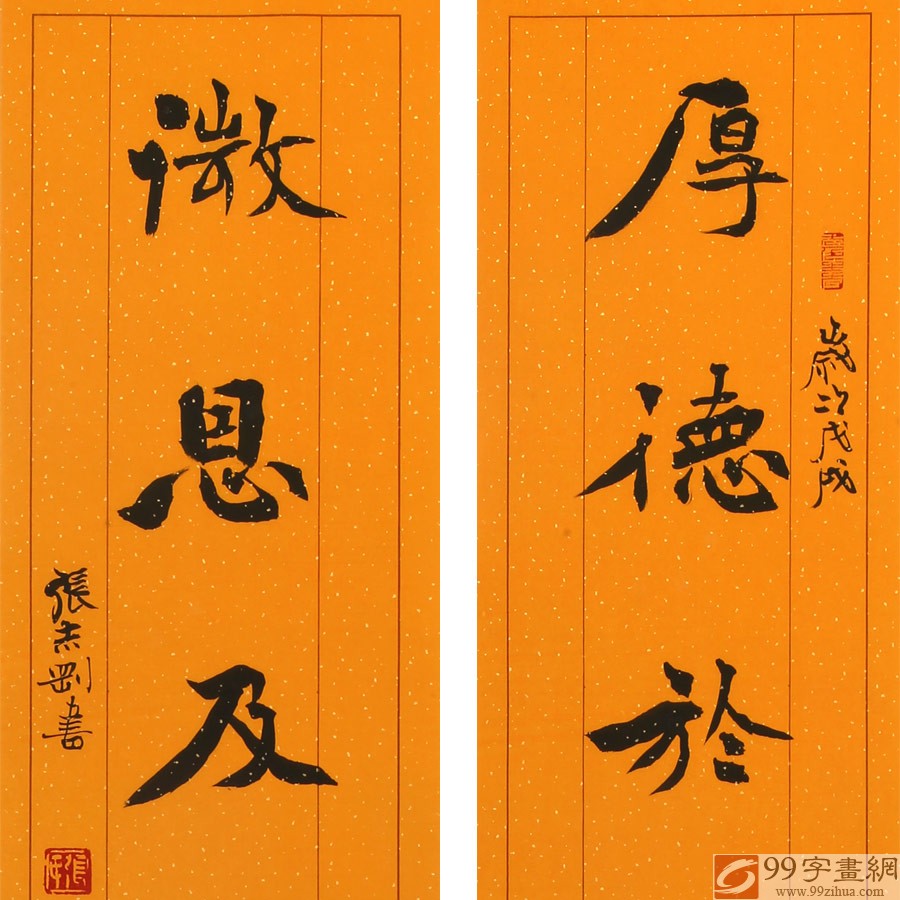 歲次戊戌
厚德於
微恩及
張志剛書
99字畫網
www.99zihua.com